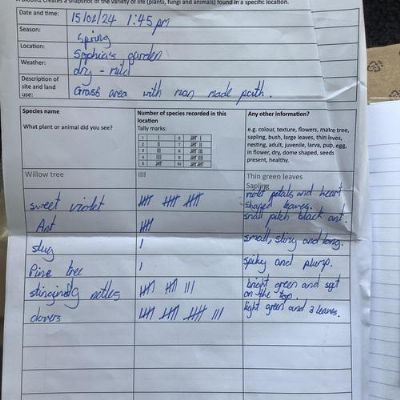 A bioblitz creates a snapshot of the variety of life (plants, fungi and animals) found in a specific location.
Date and time: 15/04/24 1:45pm
Season: Spring
Location: Sophie's garden
Weather: dry - mild
Description of site and land use: Grass area with man made path.
Species name
What plant or animal did you see?
Number of species recorded in this location
Tally marks:
Any other information?
e.g. colour, texture, flowers, mature tree,
sapling, bush, large leaves, thin leaves,
nesting, adult, juvenile, larva, pup, egg,
in flower, dry, dome shaped, seeds
present, healthy,
Willow tree IIII Thin green leaves
Sapling
sweet violet petals and heart
shaped leaves.
Ant small patch black ant.
slug I small, slimy and long.
Pine tree I spiky and plump.
stinging nettles bright green and
on the top.
clovers light green and 3 leaves.